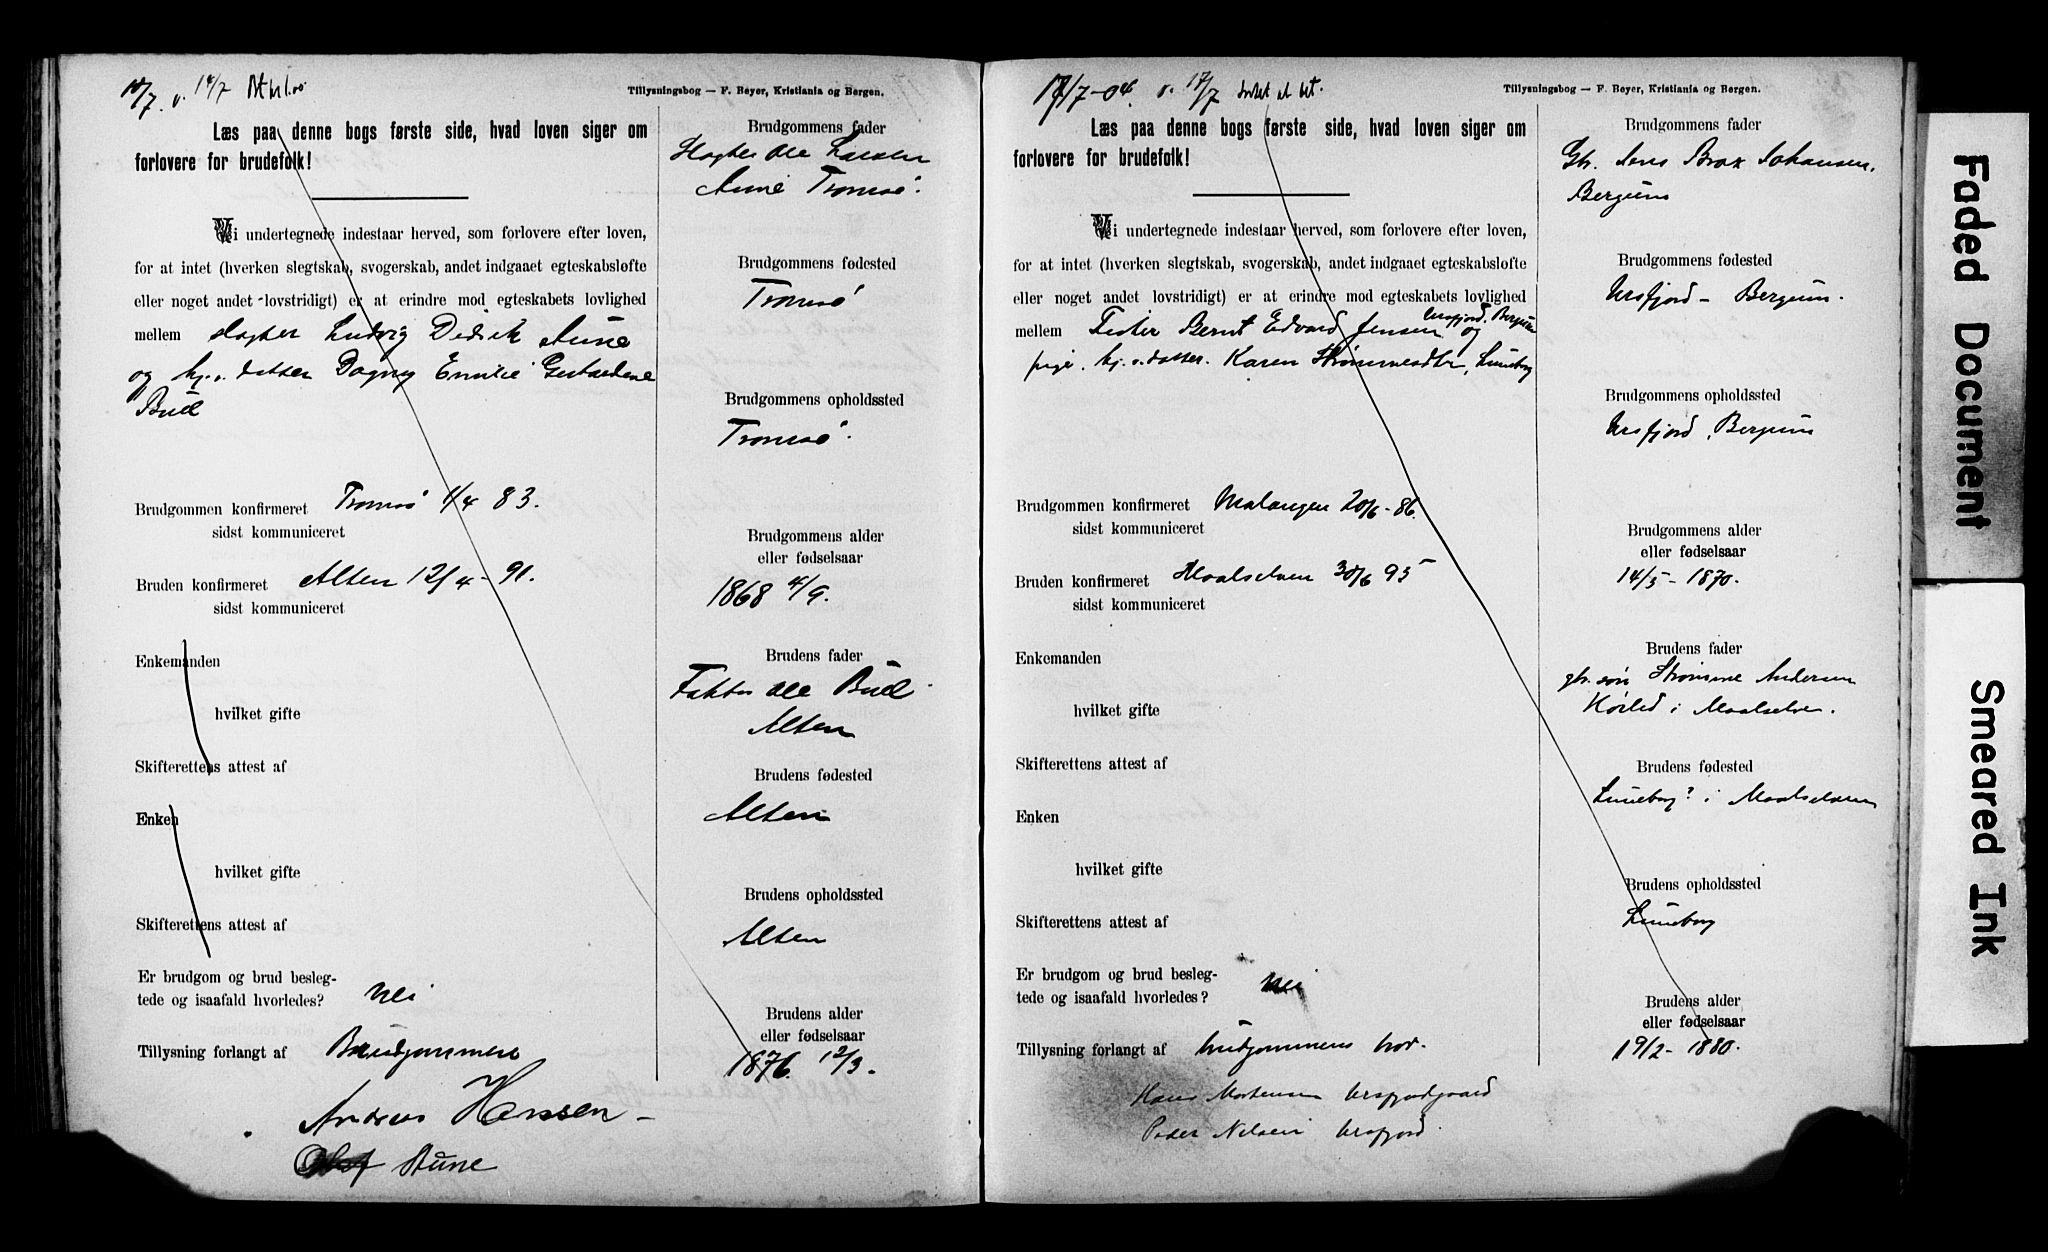 10/7. v. 14/7
Tillysningsbog — F. Beyer, Kristiania og Bergen.
Læs paa denne bogs første side, hvad loven siger om
forlovere for brudefolk!
Vi undertegnede indestaar herved, som forlovere efter loven,
for at intet (hverken slegtskab, svogerskab, andet indgaaet egteskabsløfte
eller noget andet lovstridigt) er at erindre mod egteskabets lovlighed
mellem slagter Ludvig Didrik Aune
og hj. v. datter Dagny Emilie
Buel
Brudgommen konfirmeret Tromsø 1/4 83.
sidst kommuniceret
Bruden konfirmeret Alten 12/4 - 91.
sidst kommuniceret
Enkemanden
hvilket gifte
Skifterettens attest af
Enken
hvilket gifte
Skifterettens attest af
Er brudgom og brud besleg-
tede og isaafald hvorledes? Nei
Tillysning forlangt af Brudgommen
Andreas Hansen
Olaf Aune
Brudgommens fader
Slagter Ole
Aune Tromsø.
Brudgommens fødested
Tromsø
Brudgommens opholdssted
Tromsø.
Brudgommens alder
eller fødselsaar
1868 4/9.
Brudens fader
Ole Buel
Alten
Brudens fødested
Alten
Brudens opholdssted
Alten
Brudens alder
eller fødselsaar
1876. 12/3.
17/7-04. v. 17/7
Tillysningsbog — F. Beyer, Kristiania og Bergen.
Læs paa denne bogs første side, hvad loven siger om
forlovere for brudefolk!
Vi undertegnede indestaar herved, som forlovere efter loven,
for at intet (hverken slegtskab, svogerskab, andet indgaaet egteskabsløfte
eller noget andet lovstridigt) er at erindre mod egteskabets lovlighed
Ersfjord, Bergum
mellem Fisker Bernt Edvard Jensen og
pige, hj. v. datter. Karen
Brudgommen konfirmeret Malangen 20/6 - 86.
sidst kommuniceret
Bruden konfirmeret Maalselven 30/6 95
sidst kommuniceret
Enkemanden
hvilket gifte
Skifterettens attest af
Enken
hvilket gifte
Skifterettens attest af
Er brudgom og brud besleg-
tede og isaafald hvorledes? Nei
Tillysning forlangt af brudgommens bror.
Hans Mortensen Ersfjordgaard
Peder Nilsen Ersfjord.
Brudgommens fader
Gbr. Jens Brox Johansen,
Bergum
Brudgommens fødested
Ersfjord - Bergum.
Brudgommens opholdssted
Ersfjord, Bergum
Brudgommens alder
eller fødselsaar
14/5 - 1870.
Brudens fader
Andersen
i Maalselven.
Brudens fødested
i Maalselven
Brudens opholdssted
Brudens alder
eller fødselsaar
19/2 - 1880.
Faded Document
Smeared Ink